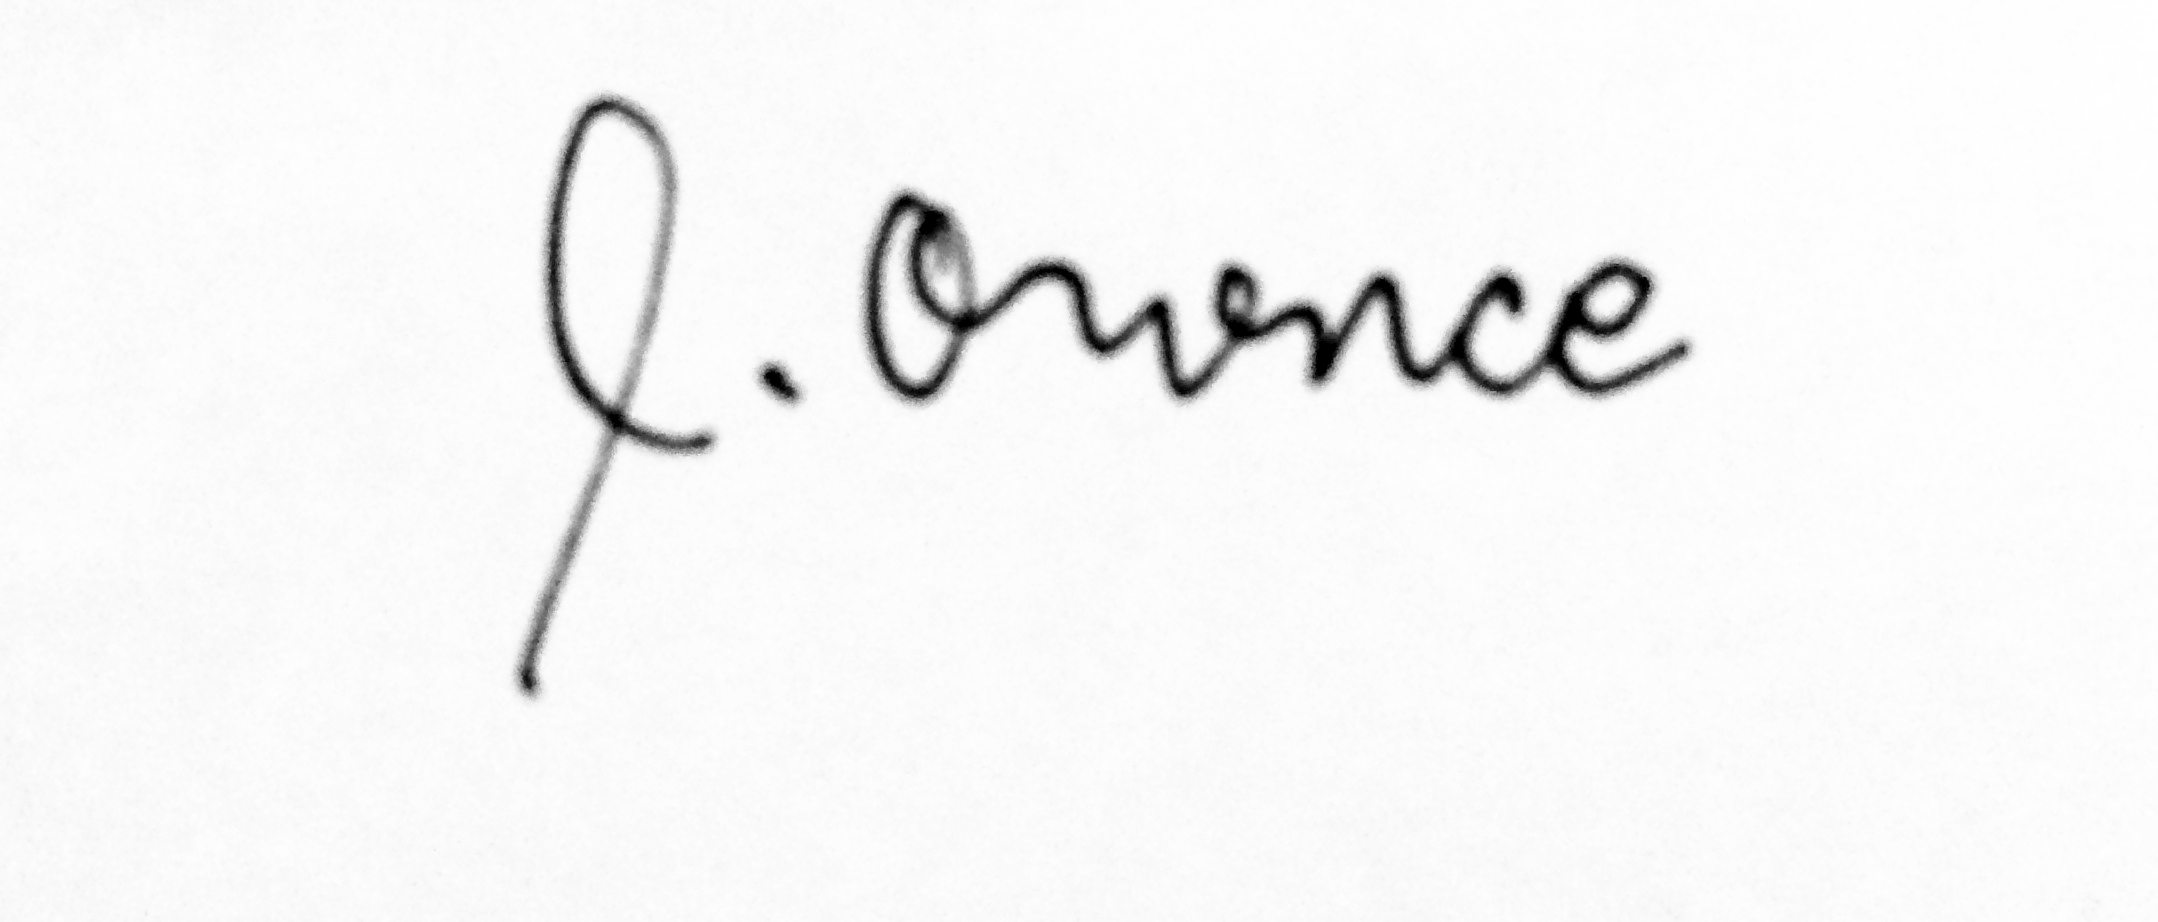 J. Owence